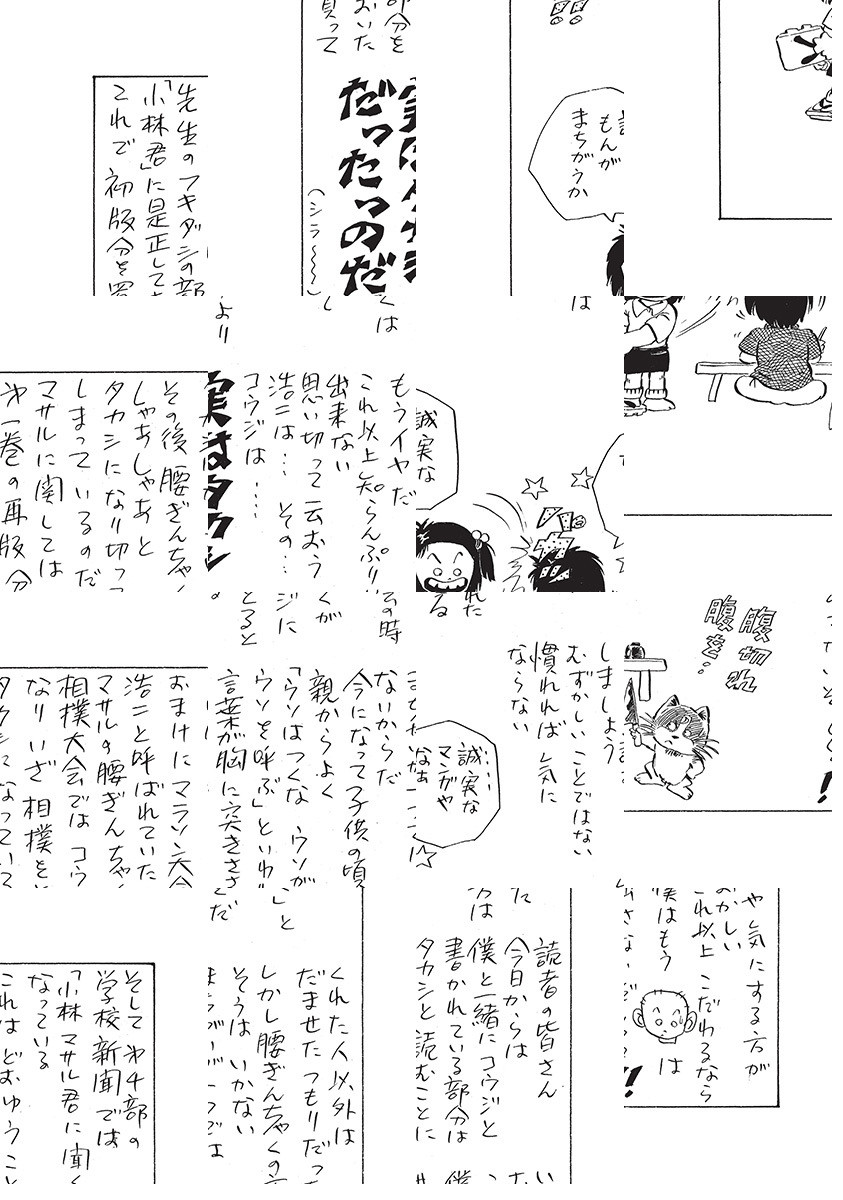 !!
もんが
まちがうか
おいた
買って
だったのだ
(シラ〜〜〜)
先生のフキダシの部
「小林君」に是正して
これで初版分を
は
誠実な
くは
もうイヤだ
これ以上知らんぷり
出来ない
思い切って云おう
浩二は…その…
コウジは……
実はタカシ
より
その後腰ぎんちゃく
しゃあしゃあと
タカシになり切っ
しまっているのだ
マサルに関しては
第一巻の再版分
腹切れ
腹を…
れた
る
しましょう
むずかしいことではない
慣れれば気に
ならない
……
誠実な
マンガや
なぁ
その時
くが
ジに
とると
ないからだ
今になって子供の頃
親からよく
「ウソはつくなウソが
ウソを呼ぶ」といわ
言葉が胸に突きささ
おまけにマラソン大会
浩二と呼ばれていた
マサルの腰ぎんちゃく
相撲大会ではコウ
なりいざ相撲を
タカシになっていて
や気にする方が
おかしい
これ以上こだわるなら
僕はもう
は
!!
た
分は
読者の皆さん
今日からは
僕と一緒にコウジと
書かれている部分は
タカシと読むことに
」と
くだ
くれた人以外は
だませたつもりだっ
しかし腰ぎんちゃくの
そうはいかない
そして第4部の
学校新聞では
「小林マサル君に聞く
なっている
これはどおゆうこと